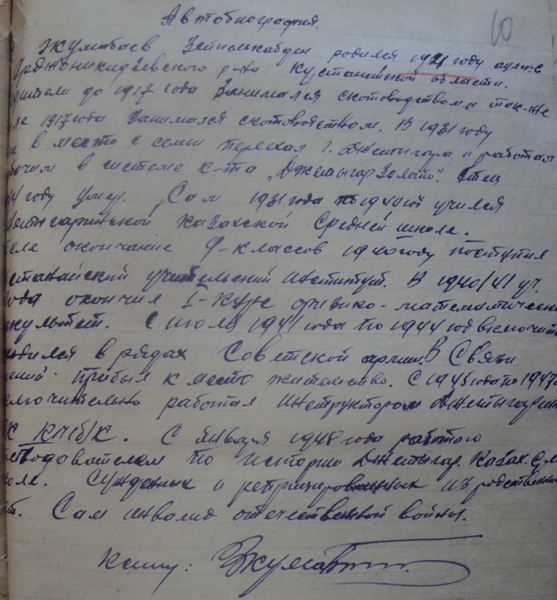 Автобиография.
10
Жумабаев Зейнелкабден родился 1921 году ауле с
Орджоникидзевского р-на Кустанайской области.
Родители до 1917 года занимался скотоводством а так-же
после 1917 года занимался скотоводством. В 1931 году
в место с семи переехал г. Джетыгара и работал
рабочим в системе к-та „Джетыгарзолото". Отец
году умер. Сам 1931 года по 1940 год учился
казахской средней школе.
окончание 9-классов 1940 году поступил
учительский институт. В 1940/41 уч.
года окончил I-курс физико-математический
факультет. С июля 1941 года по 1944 год включит
находился в рядах Советской армии. В связи
прибыл к место жительство. С 1945 года по 1947
включительно работал инструктором Джетыгарин
КП(б)К. С января 1948 года работаю
преподавателем по истории Джетыгар. Казах. ср.
школе. Сужденных и репрессированных из родственников
нет. Сам инвалид отечественной войны.